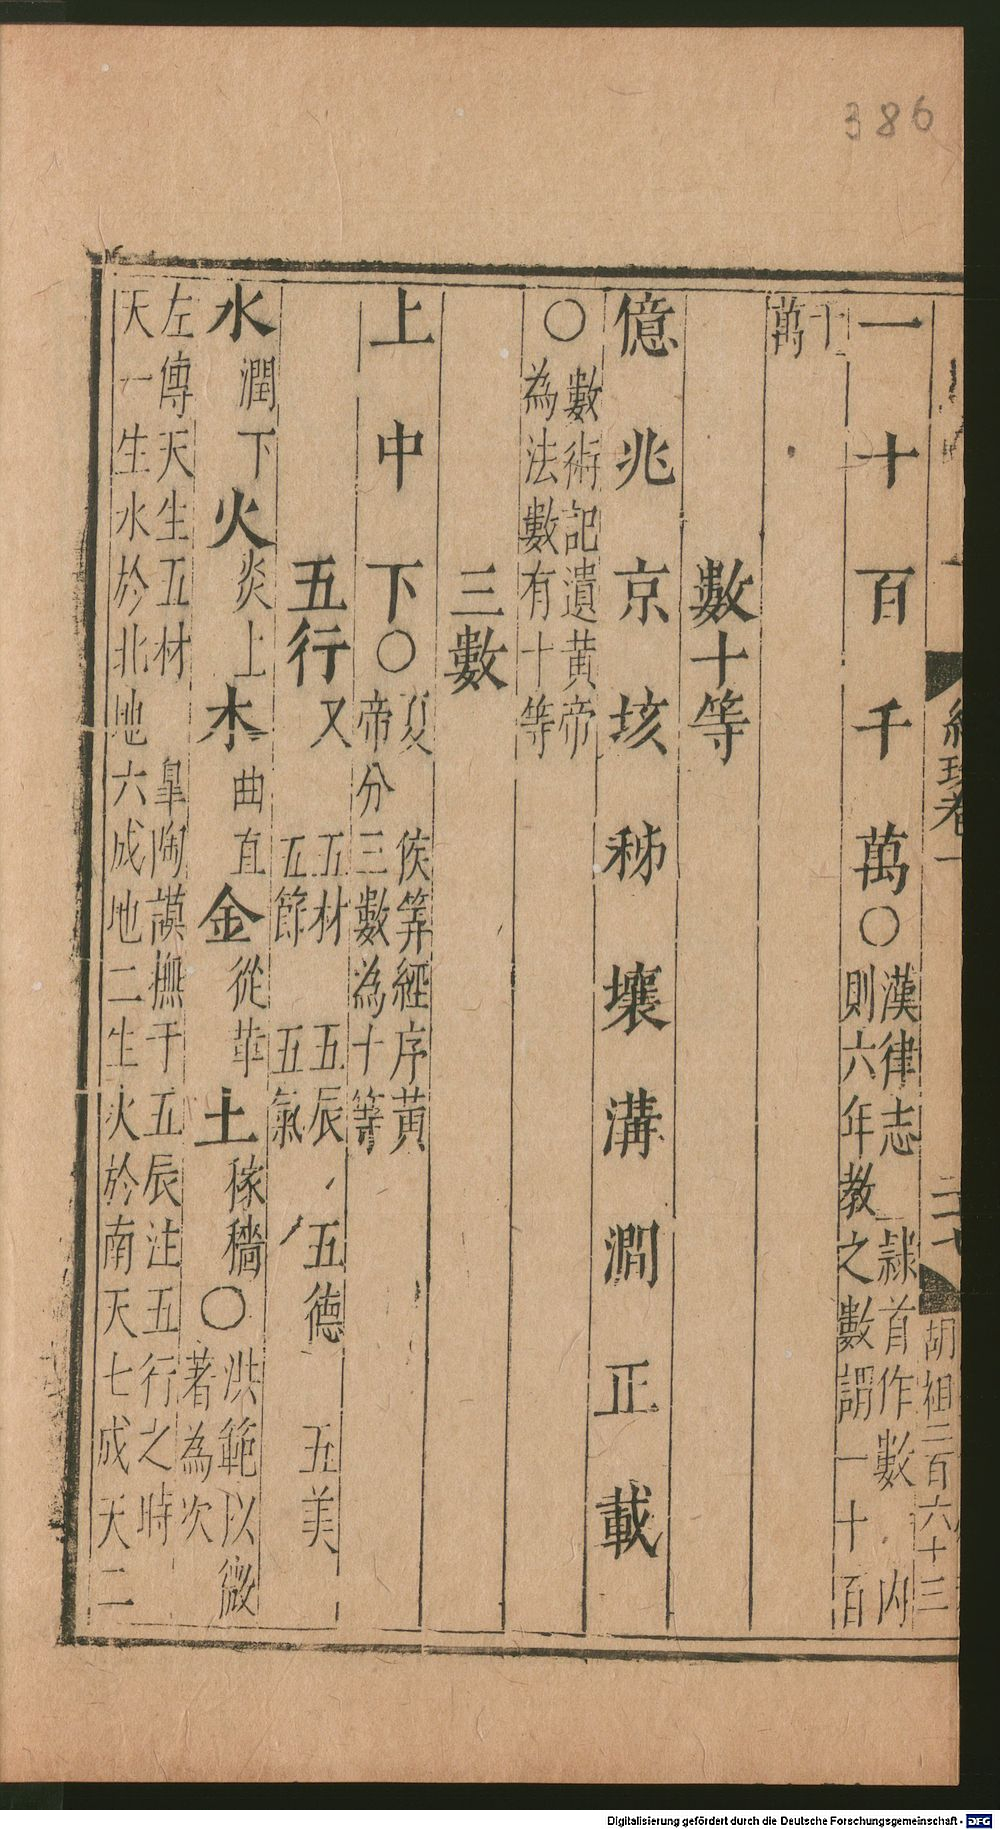 386
卷一
二十
胡祖三百六十三
一十百千萬○漢律志 隸首作數 內
則六年教之數謂一十百
千
萬
數十等
億兆京垓秭壤溝澗正載
○數術記遺黃帝
為法數有十等
三數
上中下○夏 侯筭經序黃
帝分三數為十等
五行又 五材 五辰 五德 五美
五餙 五氣
水潤下火炎上木曲直金從革土稼穡○洪範以微
著為次
左傳天生五材 臯陶謨撫于五辰注五行之時
天一生水於北地六成地二生火於南天七成天二
Digitalisierung gefördert durch die Deutsche Forschungsgemeinschaft - DFG